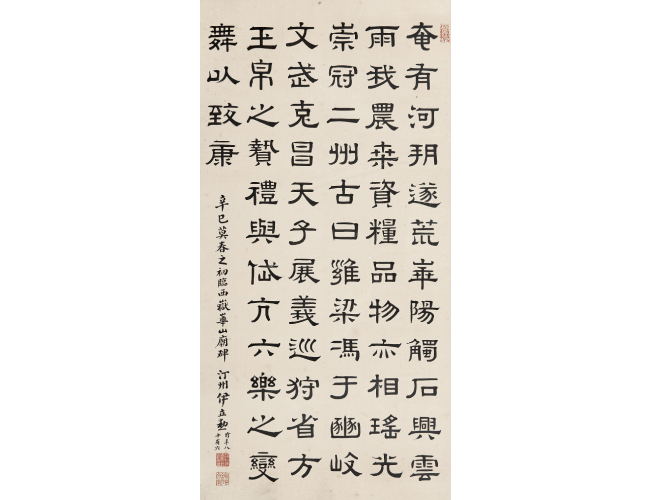 奄有河朔遂荒崋陽觸石興雲
雨我農桒資糧品物亦相瑤光
崇冠二州古曰雝梁馮于豳岐
文武克昌天子展義巡狩省方
玉帛之贄禮與岱亢六樂之變
舞以致康
辛巳莫春之初臨西嶽華山廟碑 汀州伊立勳
時年八
十有六